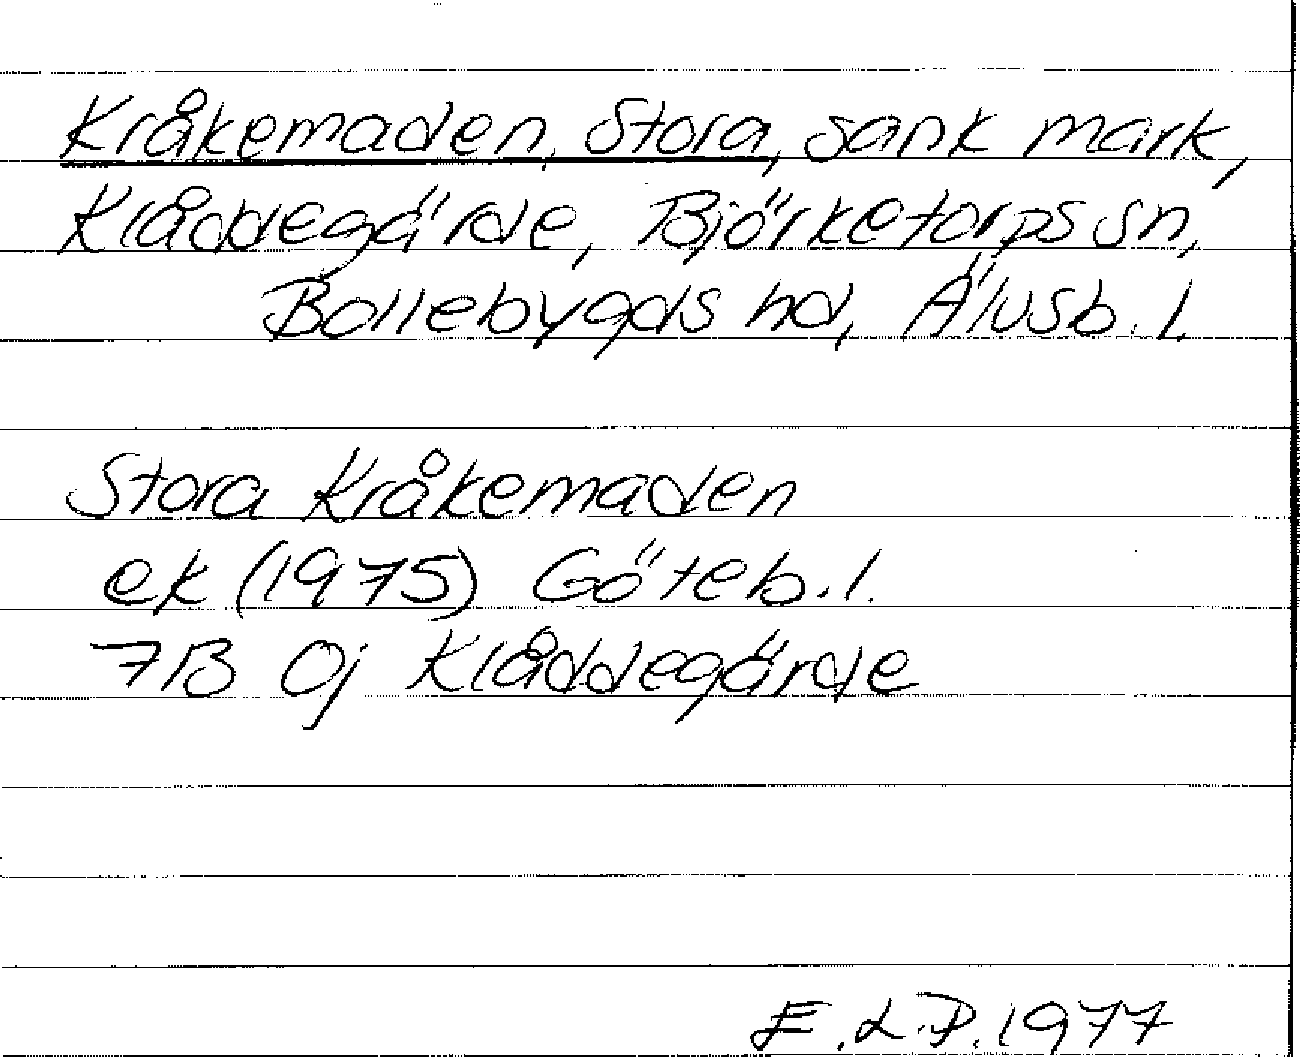 Kråkemaden, Stora, sank mark,
Kláddegärde, Björketorps sn,
Bollebygds hd, Älvsb. l.
Stora Kråkemaden
ek (1975) Göteb. l.
7B 0j Klåddegärde
E.L.P. 1977